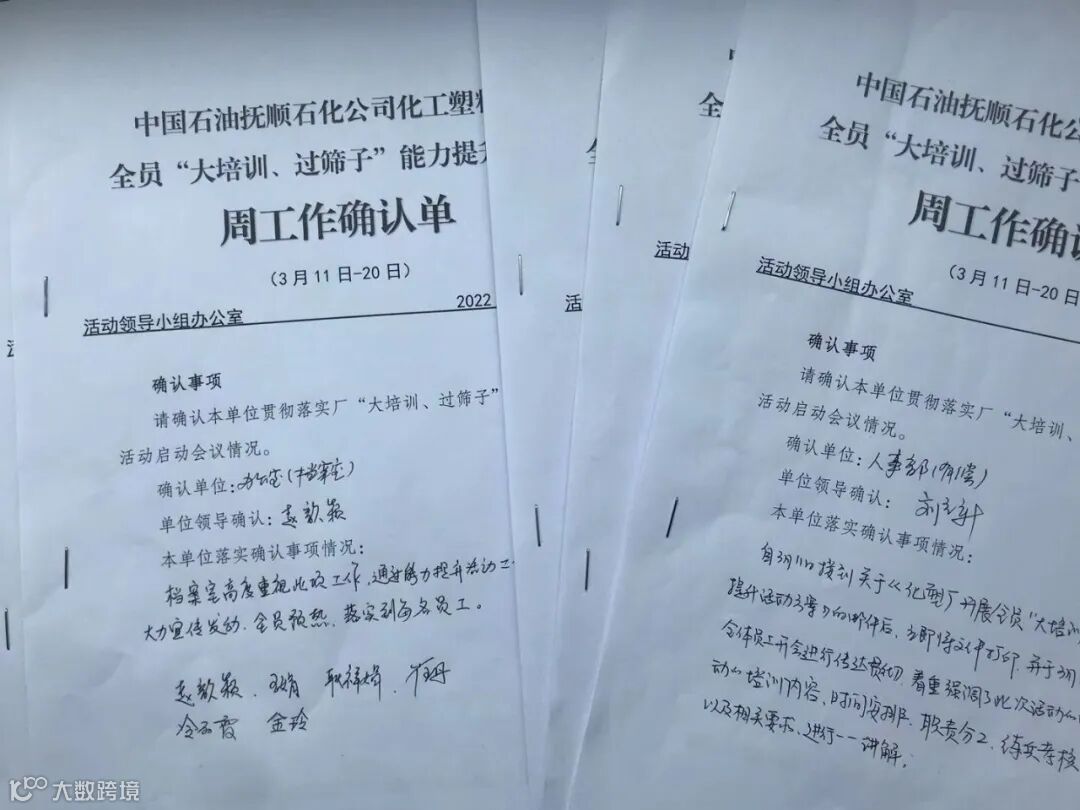 中国石油抚顺石化公司化工塑料
全员“大培训、过筛子”能力提升
周工作确认单
（3月11日-20日）
活动领导小组办公室
2022
确认事项
请确认本单位贯彻落实厂“大培训、过筛子”
活动启动会议情况。
确认单位：办公室（档案室）
单位领导确认：赵歆颖
本单位落实确认事项情况：
档案室高度重视此项工作，通过能力提升活动工
大力宣传发动、全员预热、落实到每名员工。
赵歆颖、
金玲
活
全
活动
中国石油抚顺石化公
全员“大培训、过筛子
周工作确认
（3月11日-20日
活动领导小组办公室
确认事项
请确认本单位贯彻落实厂“大培训、
活动启动会议情况。
确认单位：人事部（有偿）
单位领导确认：
本单位落实确认事项情况：
自3月11日接到关于《化塑厂开展全员“大培训
提升活动方案》的邮件后，立即将文件打印，并于3月
全体员工开会进行传达贯切，着重强调了此次活动的
动的培训内容、时间安排、职责分工、练兵考核
以及相关要求，进行一一讲解。
大数跨境